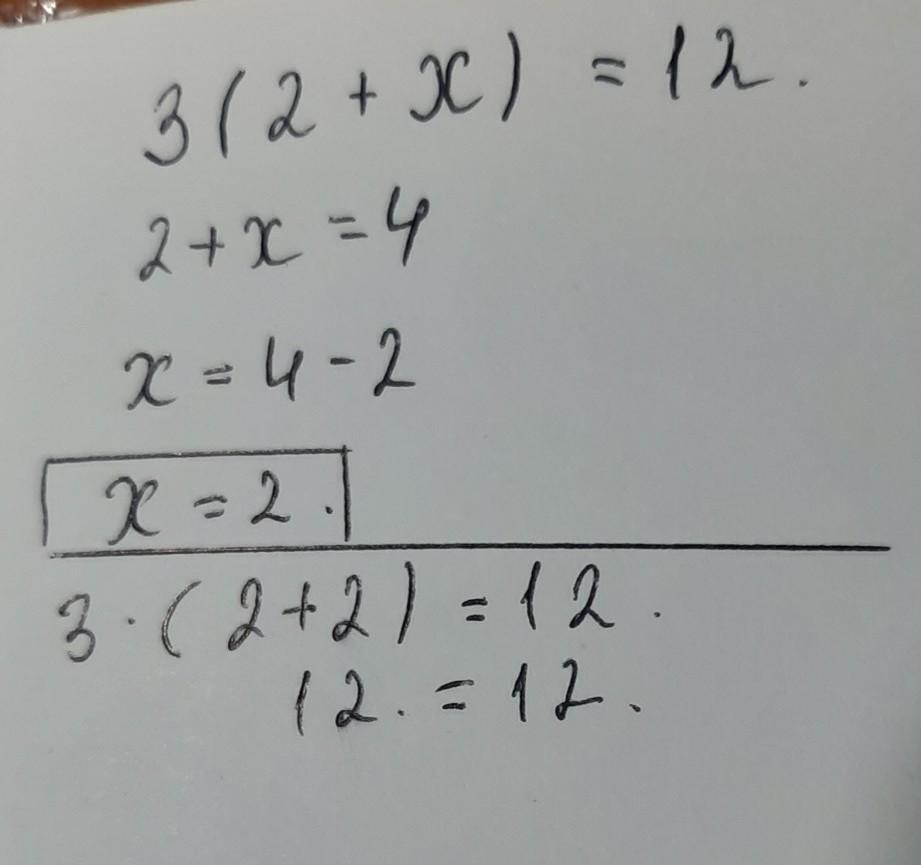 3(2 + x) = 12.
2 + x = 4
x = 4 - 2
x = 2.
3 · (2 + 2) = 12.
12. = 12.